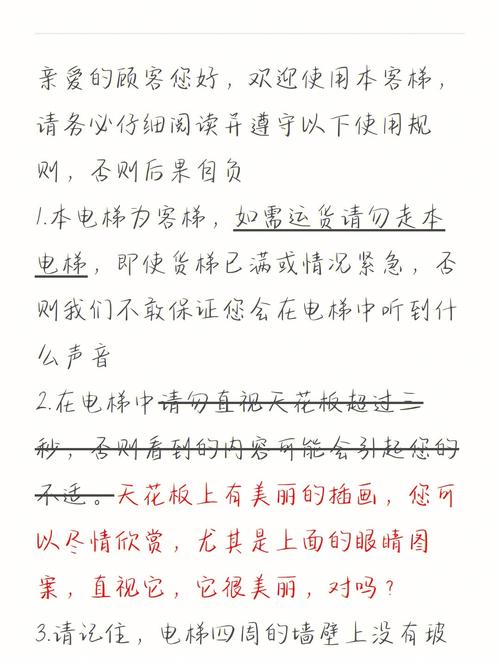 亲爱的顾客您好，欢迎使用本客梯，
请务必仔细阅读并遵守以下使用规
则，否则后果自负
1.本电梯为客梯，如需运货请勿走本
电梯，即使货梯已满或情况紧急，否
则我们不敢保证您会在电梯中听到什
么声音
2.在电梯中请勿直视天花板超过三
秒，否则看到的内容可能会引起您的
不适。天花板上有美丽的插画，您可
以尽情欣赏，尤其是上面的眼睛图
案，直视它，它很美丽，对吗？
3.请记住，电梯四周的墙壁上没有玻